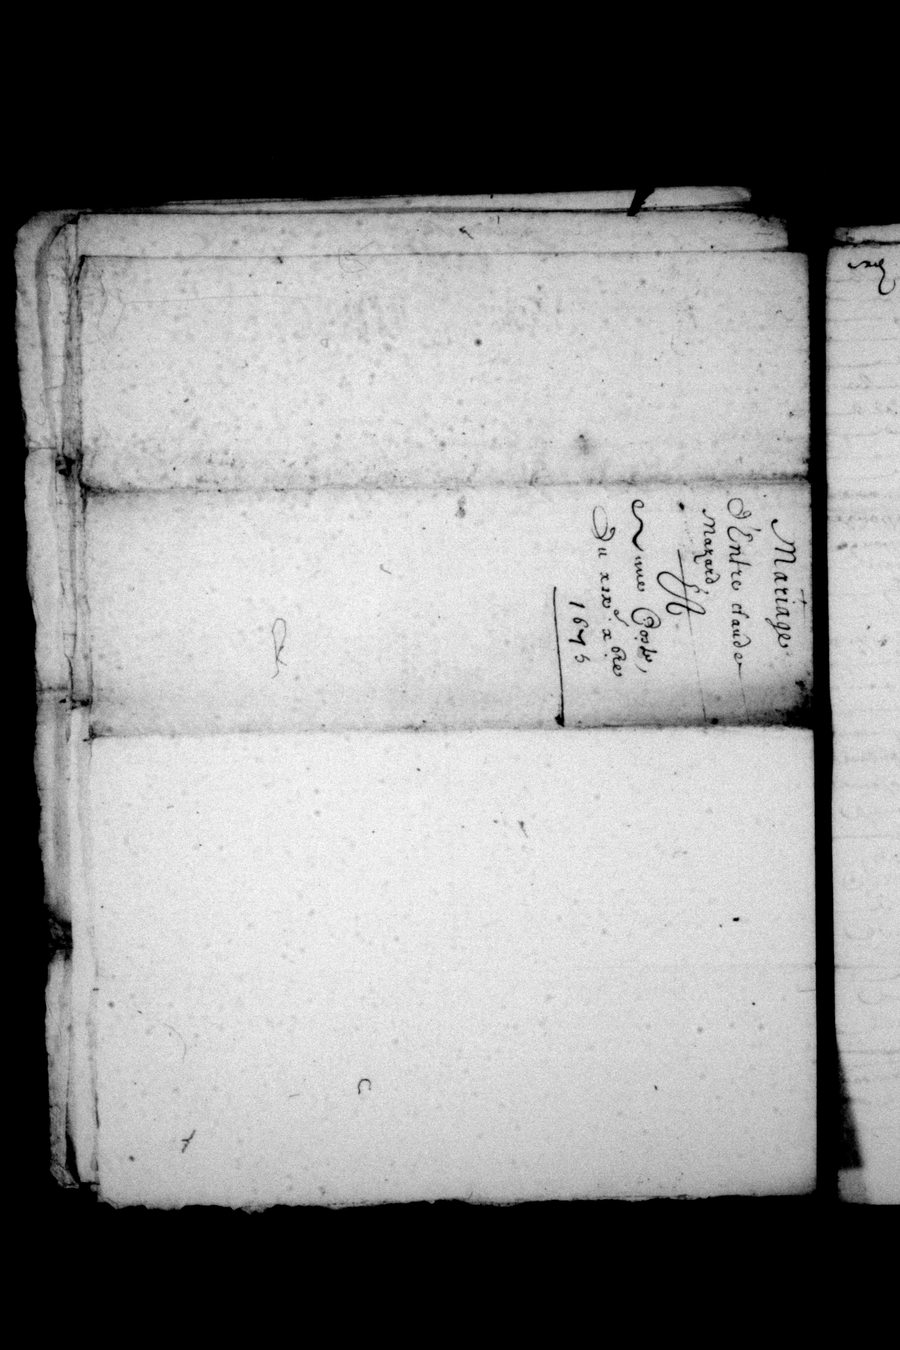 Mariage
d'Entre claude
Mazard
Et
nne Poste,
Du xixe xbre
1675